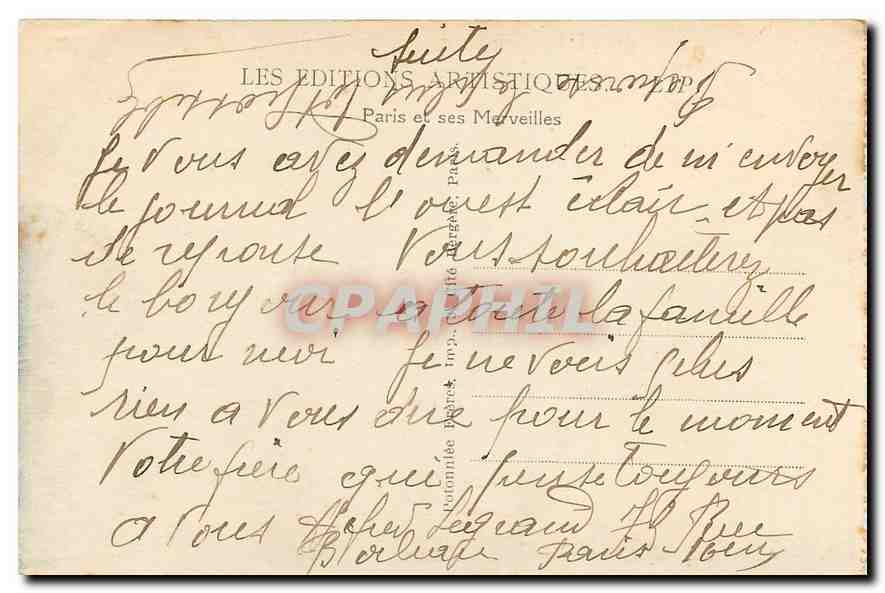 Suite
LES EDITIONS ARTISTIQUES. LIP
Paris et ses Merveilles
Je vous avez demander de m'envoyer
le journal l'ouest éclair. et pas
de reponse Vous souhaiterez
le bonjour a toute la famille
pour moi Je ne vois plus
rien a vous dire pour le moment
Votre frère qui pense toujours
a vous Alfred Legrand Rue
Paris
Potonniée Frères, Imp., Cité Bergère, Paris.
CPAPHIL